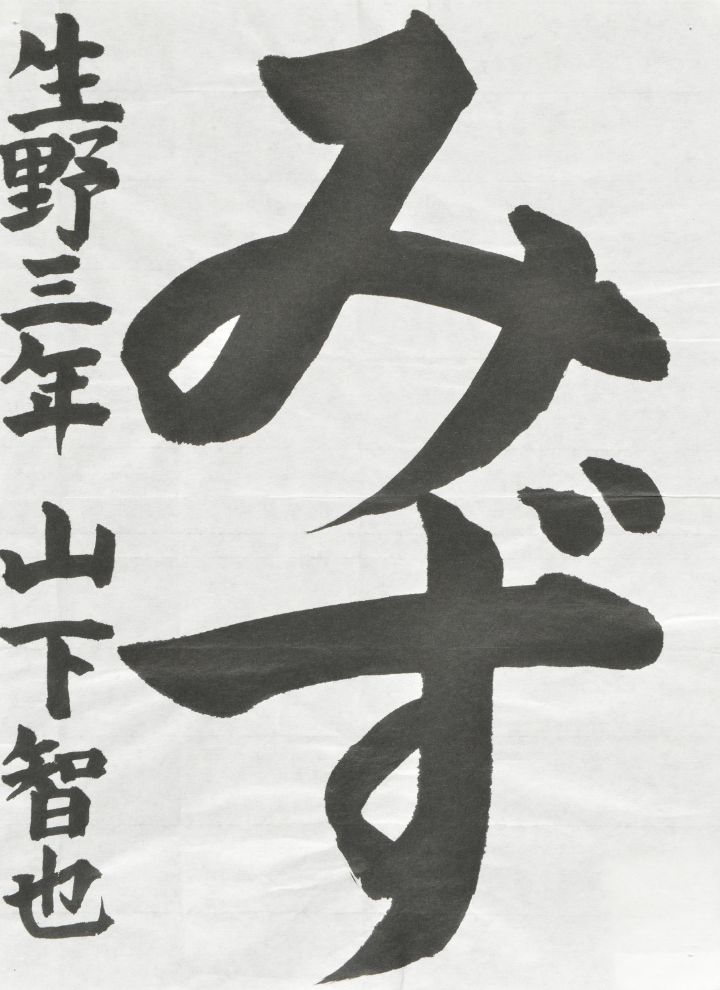 みず
生野三年 山下智也